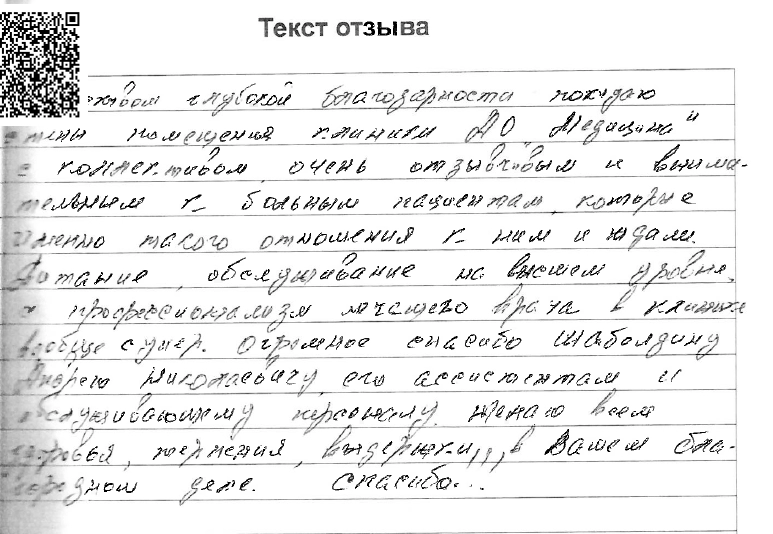 Текст отзыва
чувством глубокой благодарности покидаю
стены помещения клиники АО "Медицина"
с коллективом очень отзывчивым и внима-
тельным к больным пациентам, которые
именно такого отношения к ним и ждали.
Питание, обслуживание на высшем уровне,
а профессионализм лечащего врача в клинике
вообще супер. Огромное спасибо Шаболдину
Андрею Николаевичу, его ассистентам и
обслуживающему персоналу. Желаю всем
здоровья, терпения, выдержки,,, в Вашем бла-
городном деле. Спасибо...